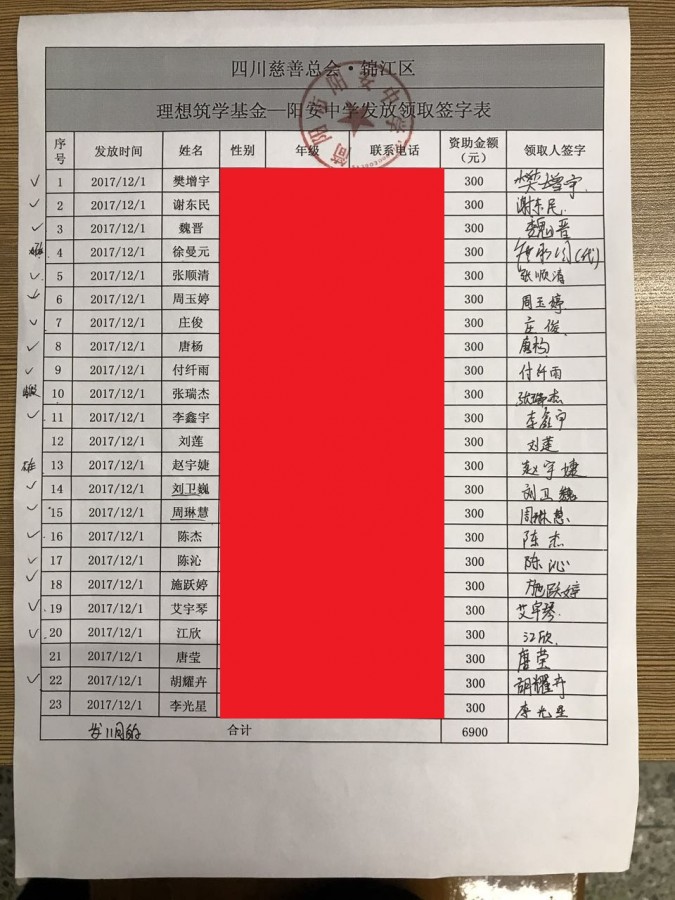 四川慈善总会·锦江区
理想筑学基金—阳安中学发放领取签字表
简阳市阳安中学
序号 发放时间 姓名 性别 年级 联系电话 资助金额（元） 领取人签字
1 2017/12/1 樊增宇 300 樊增宇
2 2017/12/1 谢东民 300 谢东民
3 2017/12/1 魏晋 300 魏晋
4 2017/12/1 徐曼元 300 (代)
5 2017/12/1 张顺清 300 张顺清
6 2017/12/1 周玉婷 300 周玉婷
7 2017/12/1 庄俊 300 庄俊
8 2017/12/1 唐杨 300 唐杨
9 2017/12/1 付纤雨 300 付纤雨
10 2017/12/1 张瑞杰 300 张瑞杰
11 2017/12/1 李鑫宇 300 李鑫宇
12 2017/12/1 刘莲 300 刘莲
13 2017/12/1 赵宇婕 300 赵宇婕
14 2017/12/1 刘卫巍 300 刘卫巍
15 2017/12/1 周琳慧 300 周琳慧
16 2017/12/1 陈杰 300 陈杰
17 2017/12/1 陈沁 300 陈沁
18 2017/12/1 施跃婷 300 施跃婷
19 2017/12/1 艾宇琴 300 艾宇琴
20 2017/12/1 江欣 300 江欣
21 2017/12/1 唐莹 300 唐莹
22 2017/12/1 胡耀卉 300 胡耀卉
23 2017/12/1 李光星 300 李光星
合计 6900